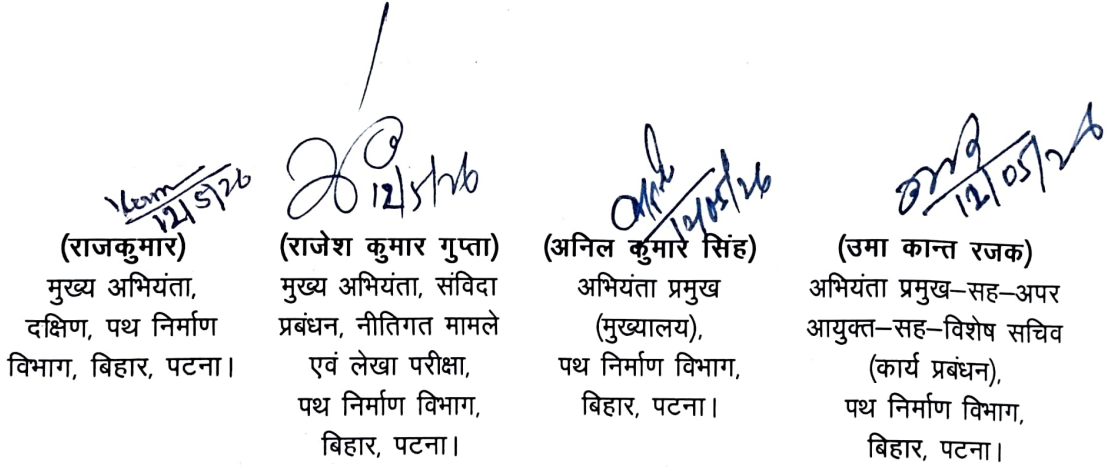 12/5/26
12/5/26
12/05/26
12/05/26
(राजकुमार)
मुख्य अभियंता,
दक्षिण, पथ निर्माण
विभाग, बिहार, पटना।
(राजेश कुमार गुप्ता)
मुख्य अभियंता, संविदा
प्रबंधन, नीतिगत मामले
एवं लेखा परीक्षा,
पथ निर्माण विभाग,
बिहार, पटना।
(अनिल कुमार सिंह)
अभियंता प्रमुख
(मुख्यालय),
पथ निर्माण विभाग,
बिहार, पटना।
(उमा कान्त रजक)
अभियंता प्रमुख–सह–अपर
आयुक्त–सह–विशेष सचिव
(कार्य प्रबंधन),
पथ निर्माण विभाग,
बिहार, पटना।